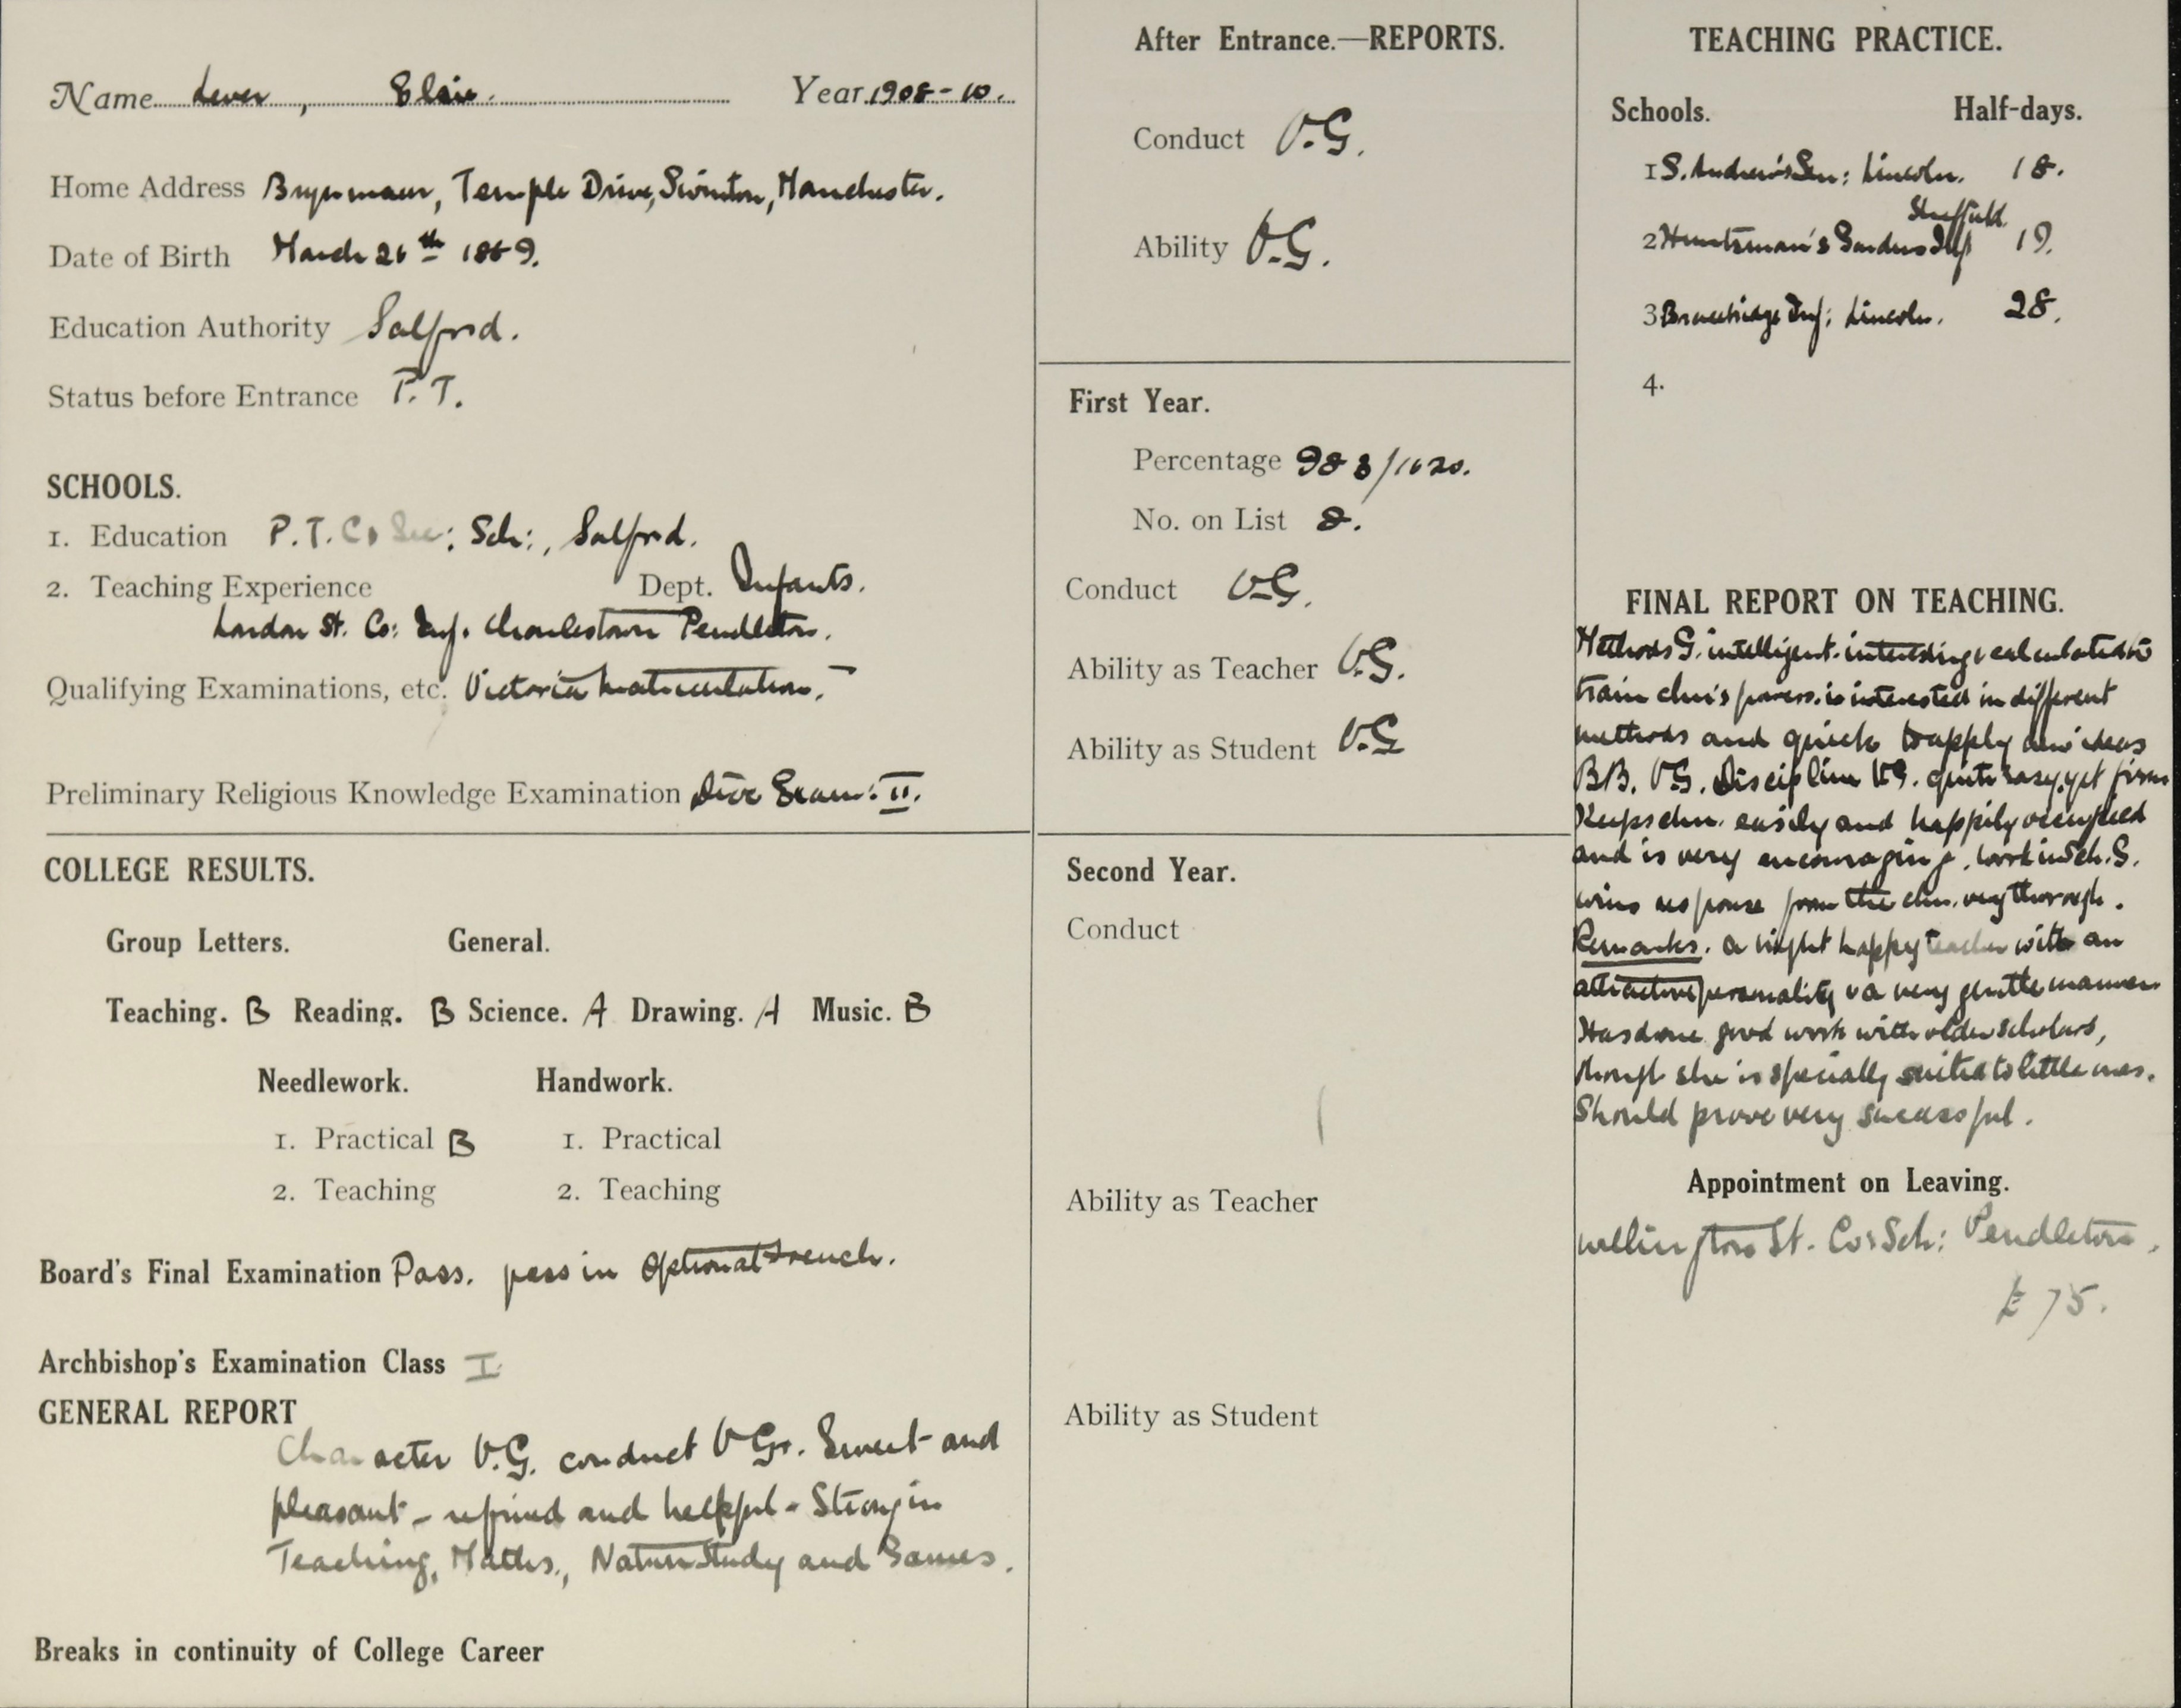 Name Lever, Elsie. Year 1908-10.
Home Address Brynmawr, Temple Drive, Swinton, Manchester.
Date of Birth March 26th 1889.
Education Authority Salford.
Status before Entrance P.T.
SCHOOLS.
1. Education P.T. C, Sec: Sch:, Salford.
2. Teaching Experience Dept. Infants.
London St. Co: Inf. Charlestown Pendleton.
Qualifying Examinations, etc. Victoria Matriculation.
Preliminary Religious Knowledge Examination Dioc Exam: II.
COLLEGE RESULTS.
Group Letters. General.
Teaching. B Reading. B Science. A Drawing. A Music. B
Needlework. Handwork.
1. Practical B 1. Practical
2. Teaching 2. Teaching
Board's Final Examination Pass. pass in Optional French.
Archbishop's Examination Class I
GENERAL REPORT
Character V.G. conduct V.G. Sweet and
pleasant - refined and helpful - Strong in
Teaching, Maths., Nature Study and Games.
Breaks in continuity of College Career
After Entrance.—REPORTS.
Conduct V.G.
Ability V.G.
First Year.
Percentage 988/1620.
No. on List 8.
Conduct V.G.
Ability as Teacher V.G.
Ability as Student V.G
Second Year.
Conduct
Ability as Teacher
Ability as Student
TEACHING PRACTICE.
Schools. Half-days.
1 S. Andrew's Sen: Lincoln. 18.
Sheffield.
2 Huntsman's Gardens Inf 19.
3 Bracebridge Inf: Lincoln. 28.
4.
FINAL REPORT ON TEACHING.
Methods G. intelligent. interesting & calculated to
train chn's powers. is interested in different
methods and quick to apply new ideas
BB. VG. Discipline VG. quite easy, yet firm
Keeps chn. easily and happily occupied
and is very encouraging. work in Sch. G.
wins response from the chn. very thorough.
Remarks. a bright happy teacher with an
attractive personality & a very gentle manner
Has done good work with older scholars,
though she is specially suited to little ones.
Should prove very successful.
Appointment on Leaving.
Wellington St. Co: Sch: Pendleton.
£75.